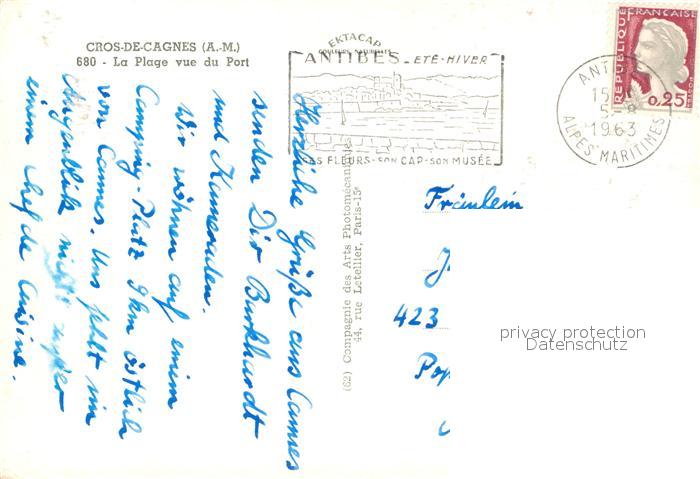 CROS-DE-CAGNES (A.-M.)
680 - La Plage vue du Port
EKTACAP
COULEURS NATURELLES
ANTIBES - ETÉ-HIVER
SES FLEURS-SON CAP-SON MUSÉE
REPUBLIQUE
FRANÇAISE
0,25
ANTIBES
15
5-8
1963
ALPES MARITIMES
Herzliche Grüße aus Cannes
senden Dir Burkhardt
und Kameraden.
Wir wohnen auf einem
Camping-Platz 9km östlich
von Cannes. Uns fehlt im
Augenblick nichts außer
einem Chef de Cuisine.
(62) Compagnie des Arts Photomécaniques
44, rue Letellier, Paris-15e
Fräulein
J
423
Pop
privacy protection
Datenschutz